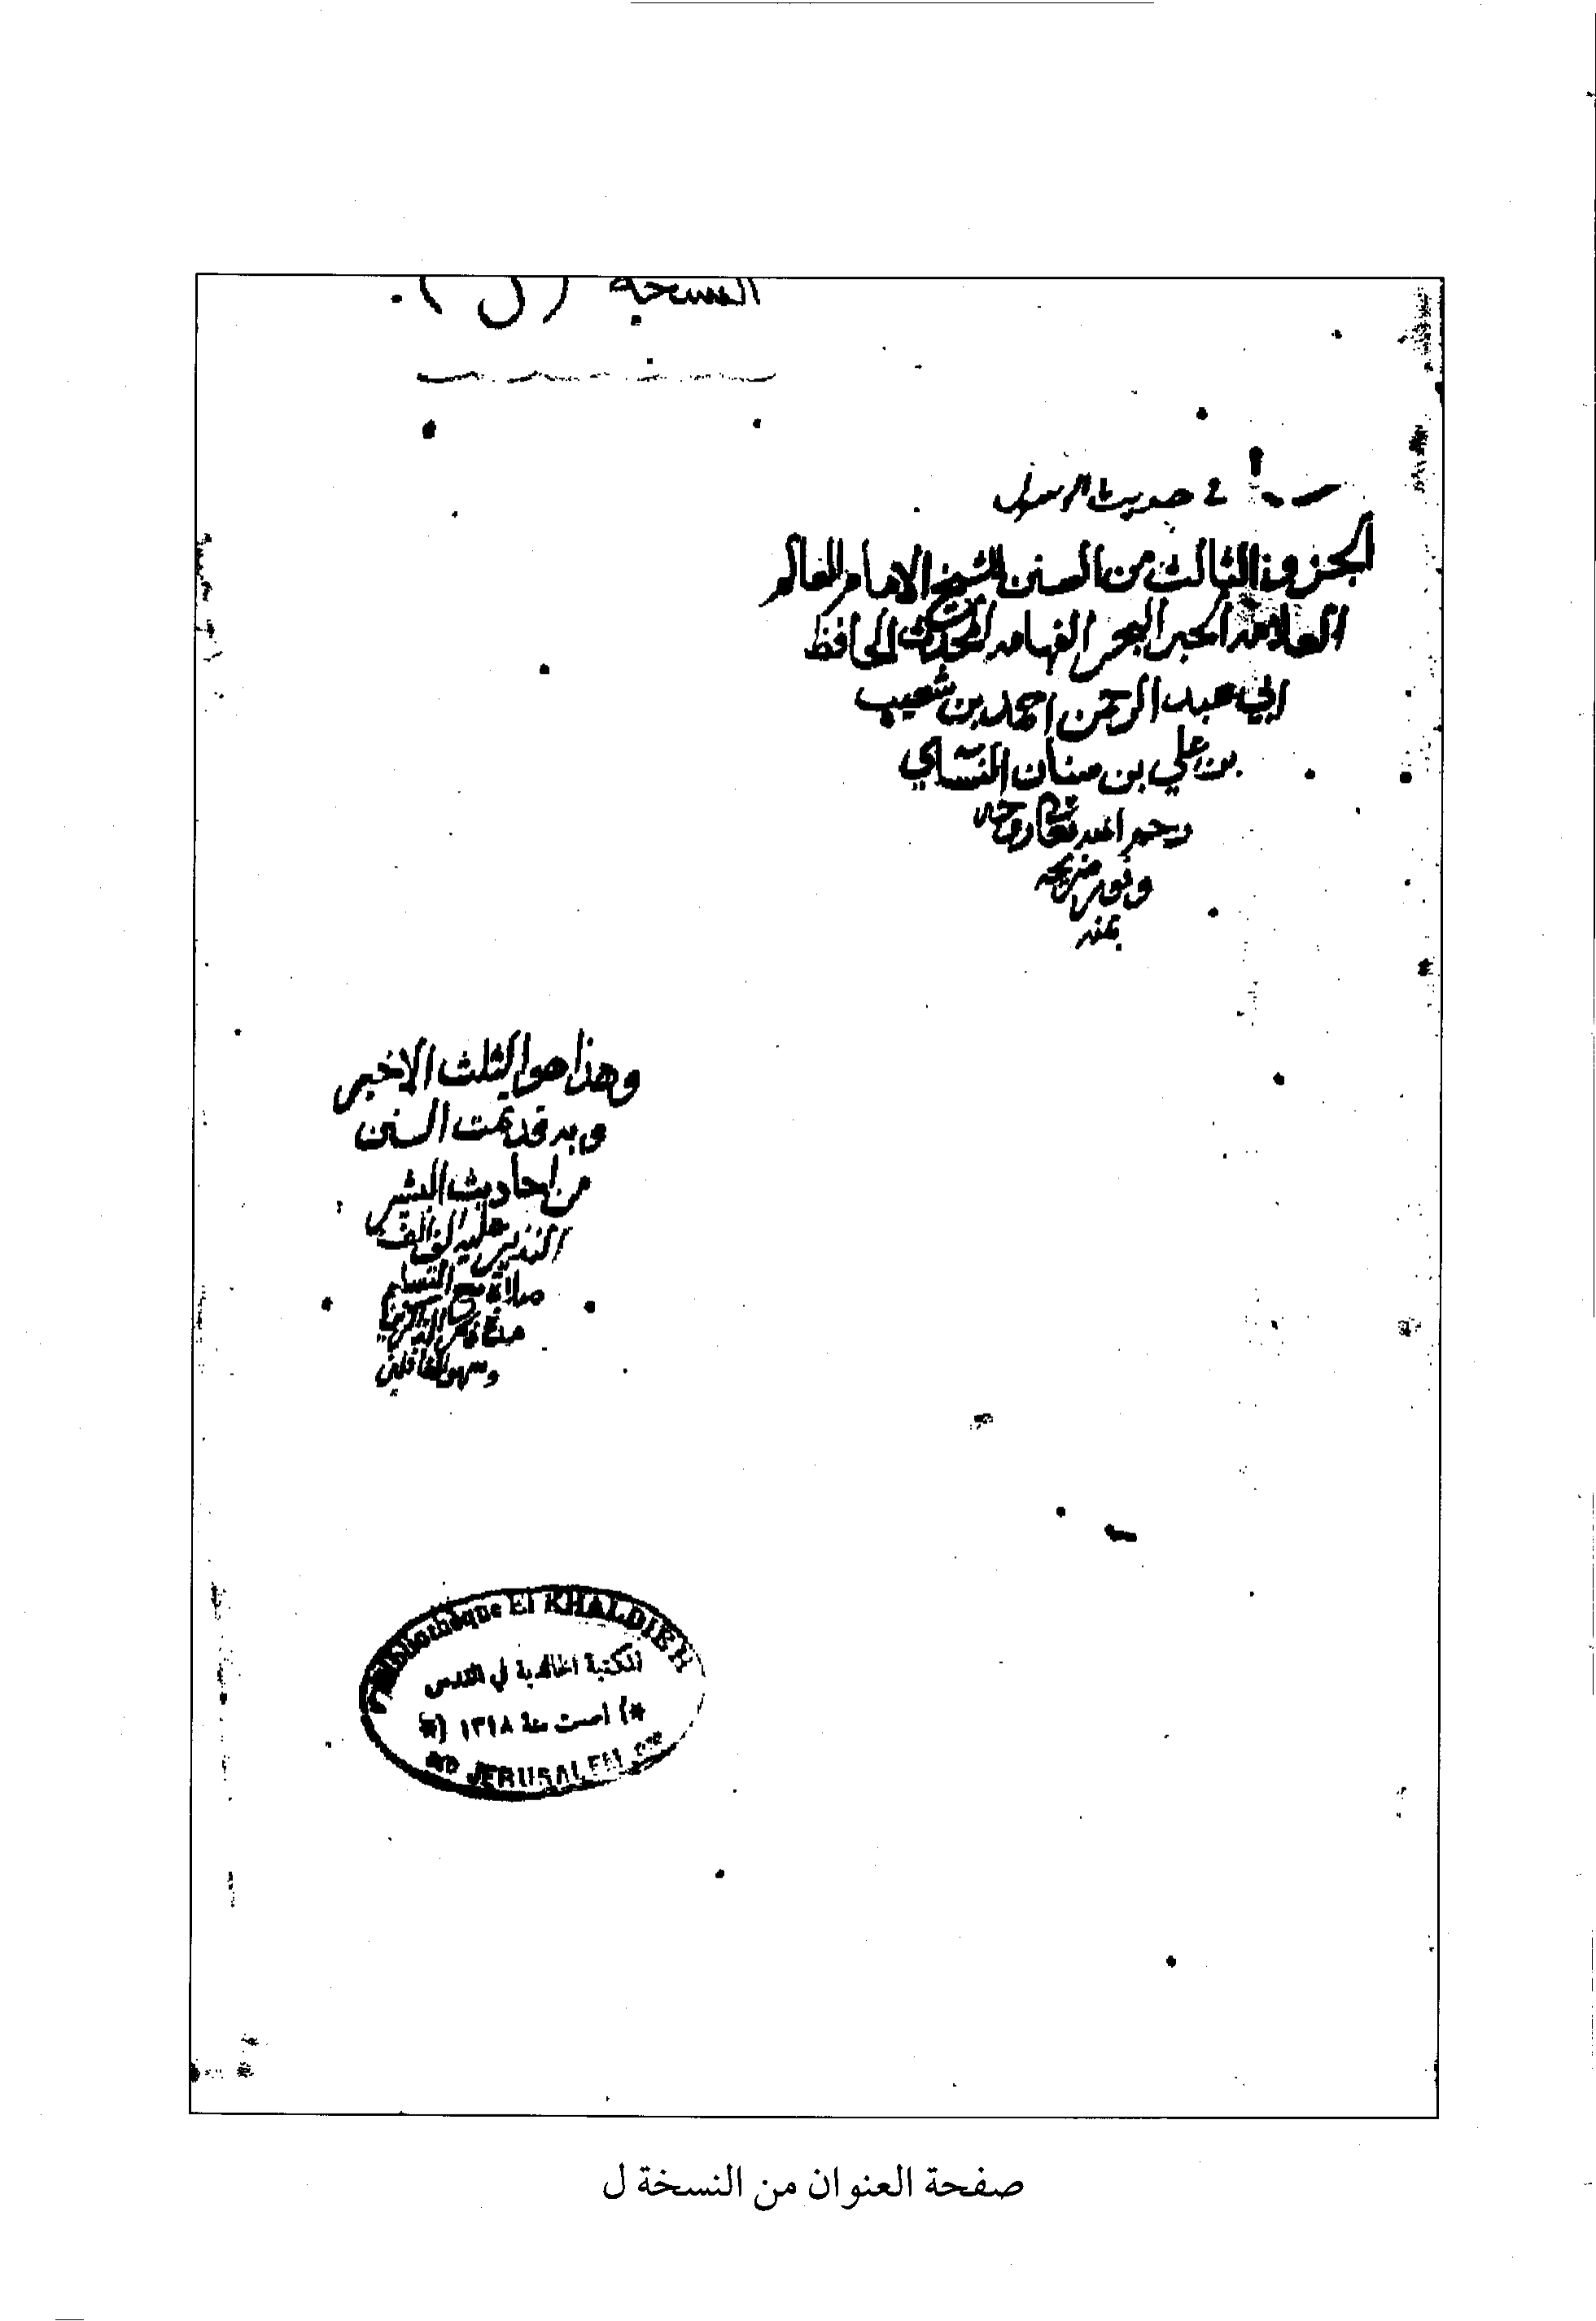 النسخة (ل).
في حديث الرسول
الجزو الثالث من السنن للشيخ الامام العالم
العلامه الحبر البحر الفهامه المحدث الحافظ
ابي عبد الرحمن احمد بن شعيب
بن علي بن سنان النسائي
رحم الله تعالى روحه
ونور ضريحه
بمنه
وهذا هو الثلث الاخير
وبه قد تمت السنن
من احاديث البشير
النذير عليه الف الف
صلاة مع التسليم
الذاكرين
وسهو الغافلين
Bibliothèque El KHALDIEH
المكتبة الخالدية في القدس
*) اسست سنة ١٣١٨ (*
JERUSALEM
صفحة العنوان من النسخة ل